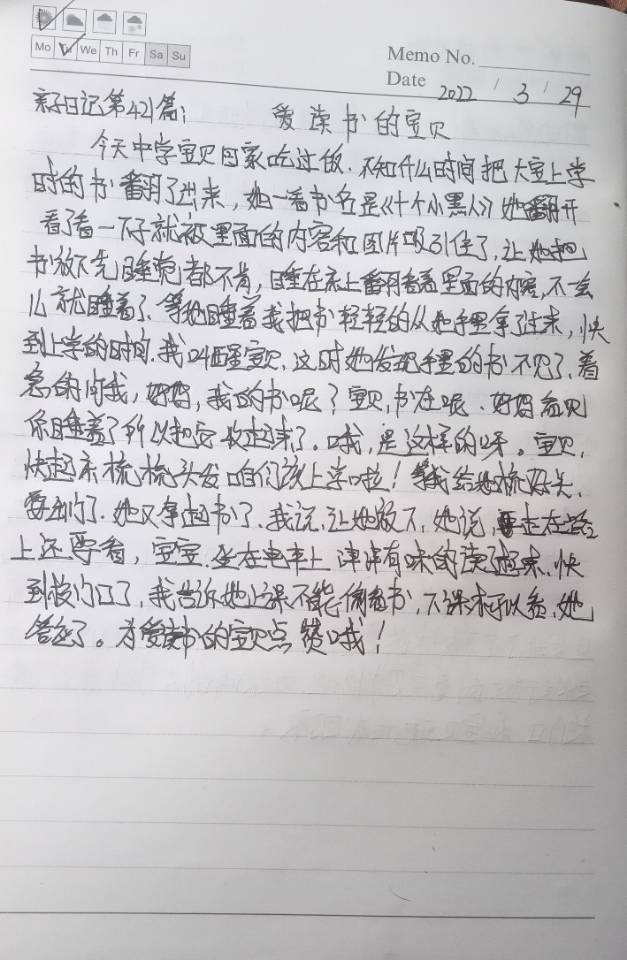 Mo Tu We Th Fr Sa Su
Memo No.
Date 2022 / 3 / 29
亲子日记第421篇：
爱读书的宝贝
今天中学宝贝回家吃过饭．不知什么时间把大宝上学
时的书翻了出来，她一看书名是《十个小黑人》她翻开
看了看一下子就被里面的内容和图片吸引住了，让她把
书放下先睡觉都不肯，睡在床上翻看着里面的内容，不一会
儿就睡着了、等她睡着我把书轻轻的从她手里拿了过来，快
到上学的时间．我叫醒宝贝，这时她发现手里的书不见了，着
急的问我，妈妈，我的书呢？宝贝，书在呢．妈妈看见
你睡着了所以把它收起来了。哦，是这样的呀。宝贝，
快起床梳梳头发咱们该上学啦！等我给她梳好头．
要走了．她又拿起书了．我说．让她放下，她说，要走在路
上还要看，宝宝．坐在电车上津津有味的读了起来、快
到校门口了，我告诉她上课不能偷看书，下课才可以看，她
答应了。为爱读书的宝贝点赞哦！